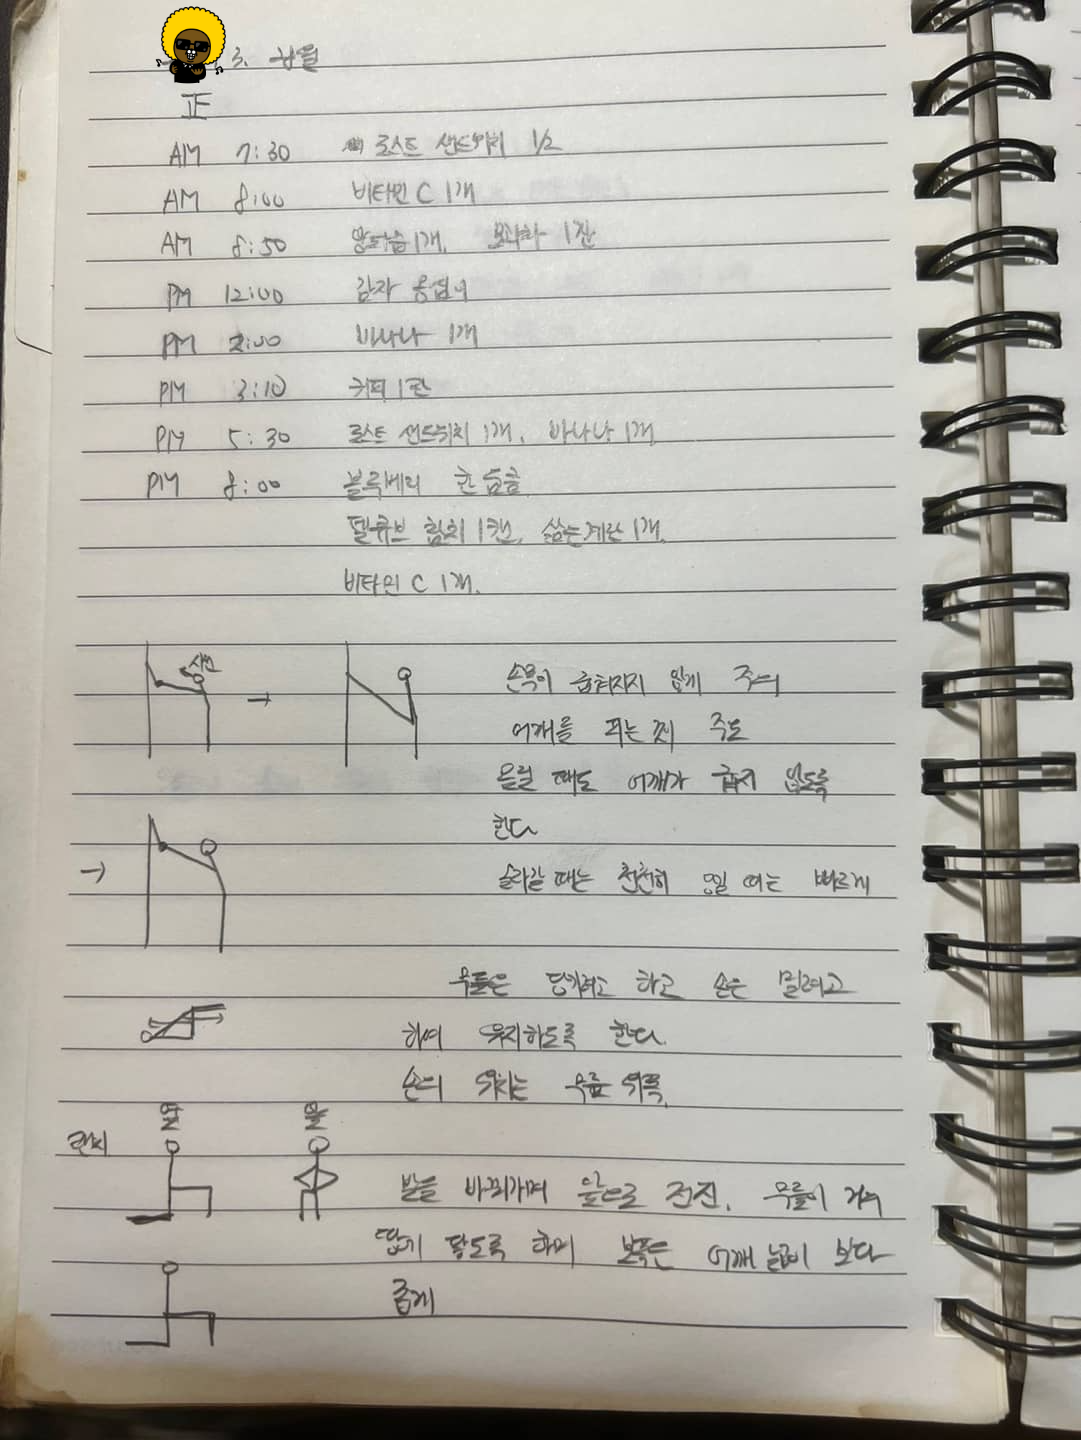 3. 월
正
AM 7:30 로스트 샌드위치 1/2
AM 8:00 비타민 C 1개
AM 8:50 1개. 모과차 1잔
PM 12:00 감자 옹심이
PM 2:00 바나나 1개
PM 3:10 커피 1잔
PM 5:30 로스트 샌드위치 1개, 바나나 1개
PM 8:00 블루베리 한 움큼
델큐브 참치 1캔, 삶는계란 1개.
비타민 C 1개.
시선
→
손목이 굽혀지지 않게 주의
어깨를 펴는 것이 주도
올릴 때도 어깨가 굽지 않도록
한다
→
올라갈 때는 천천히 때는 빠르게
무릎은 당기려고 하고 손은 밀려고
하며 유지하도록 한다.
손의 위치는 무릎 위쪽.
런지
옆 앞
발을 바꿔가며 앞으로 전진. 무릎이 거의
땅에 닿도록 하며 보폭은 어깨 넓이 보다
좁게